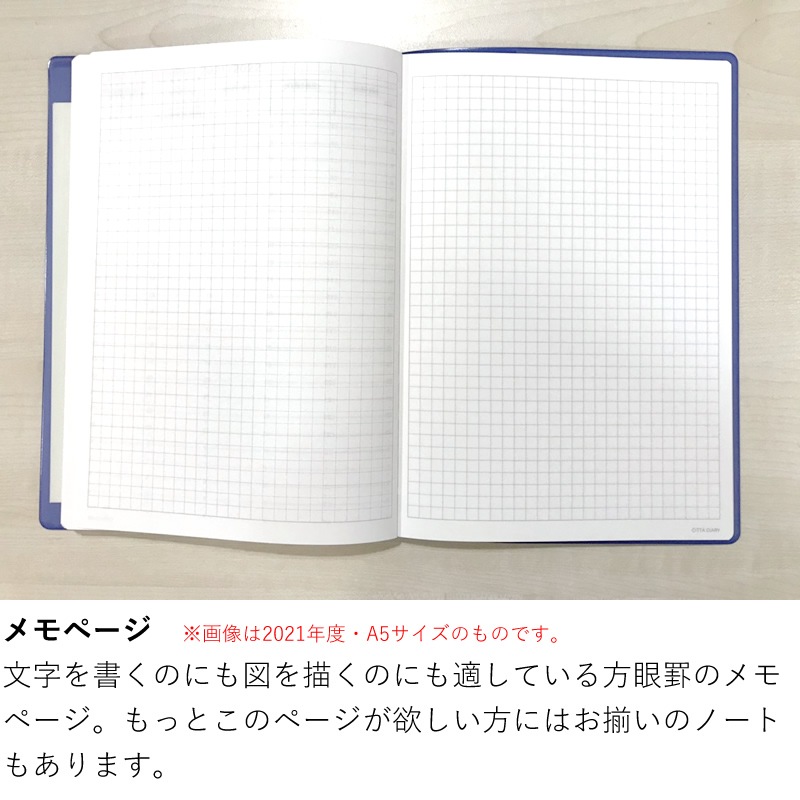 メモページ ※画像は2021年度・A5サイズのものです。
文字を書くのにも図を描くのにも適している方眼罫のメモ
ページ。もっとこのページが欲しい方にはお揃いのノート
もあります。